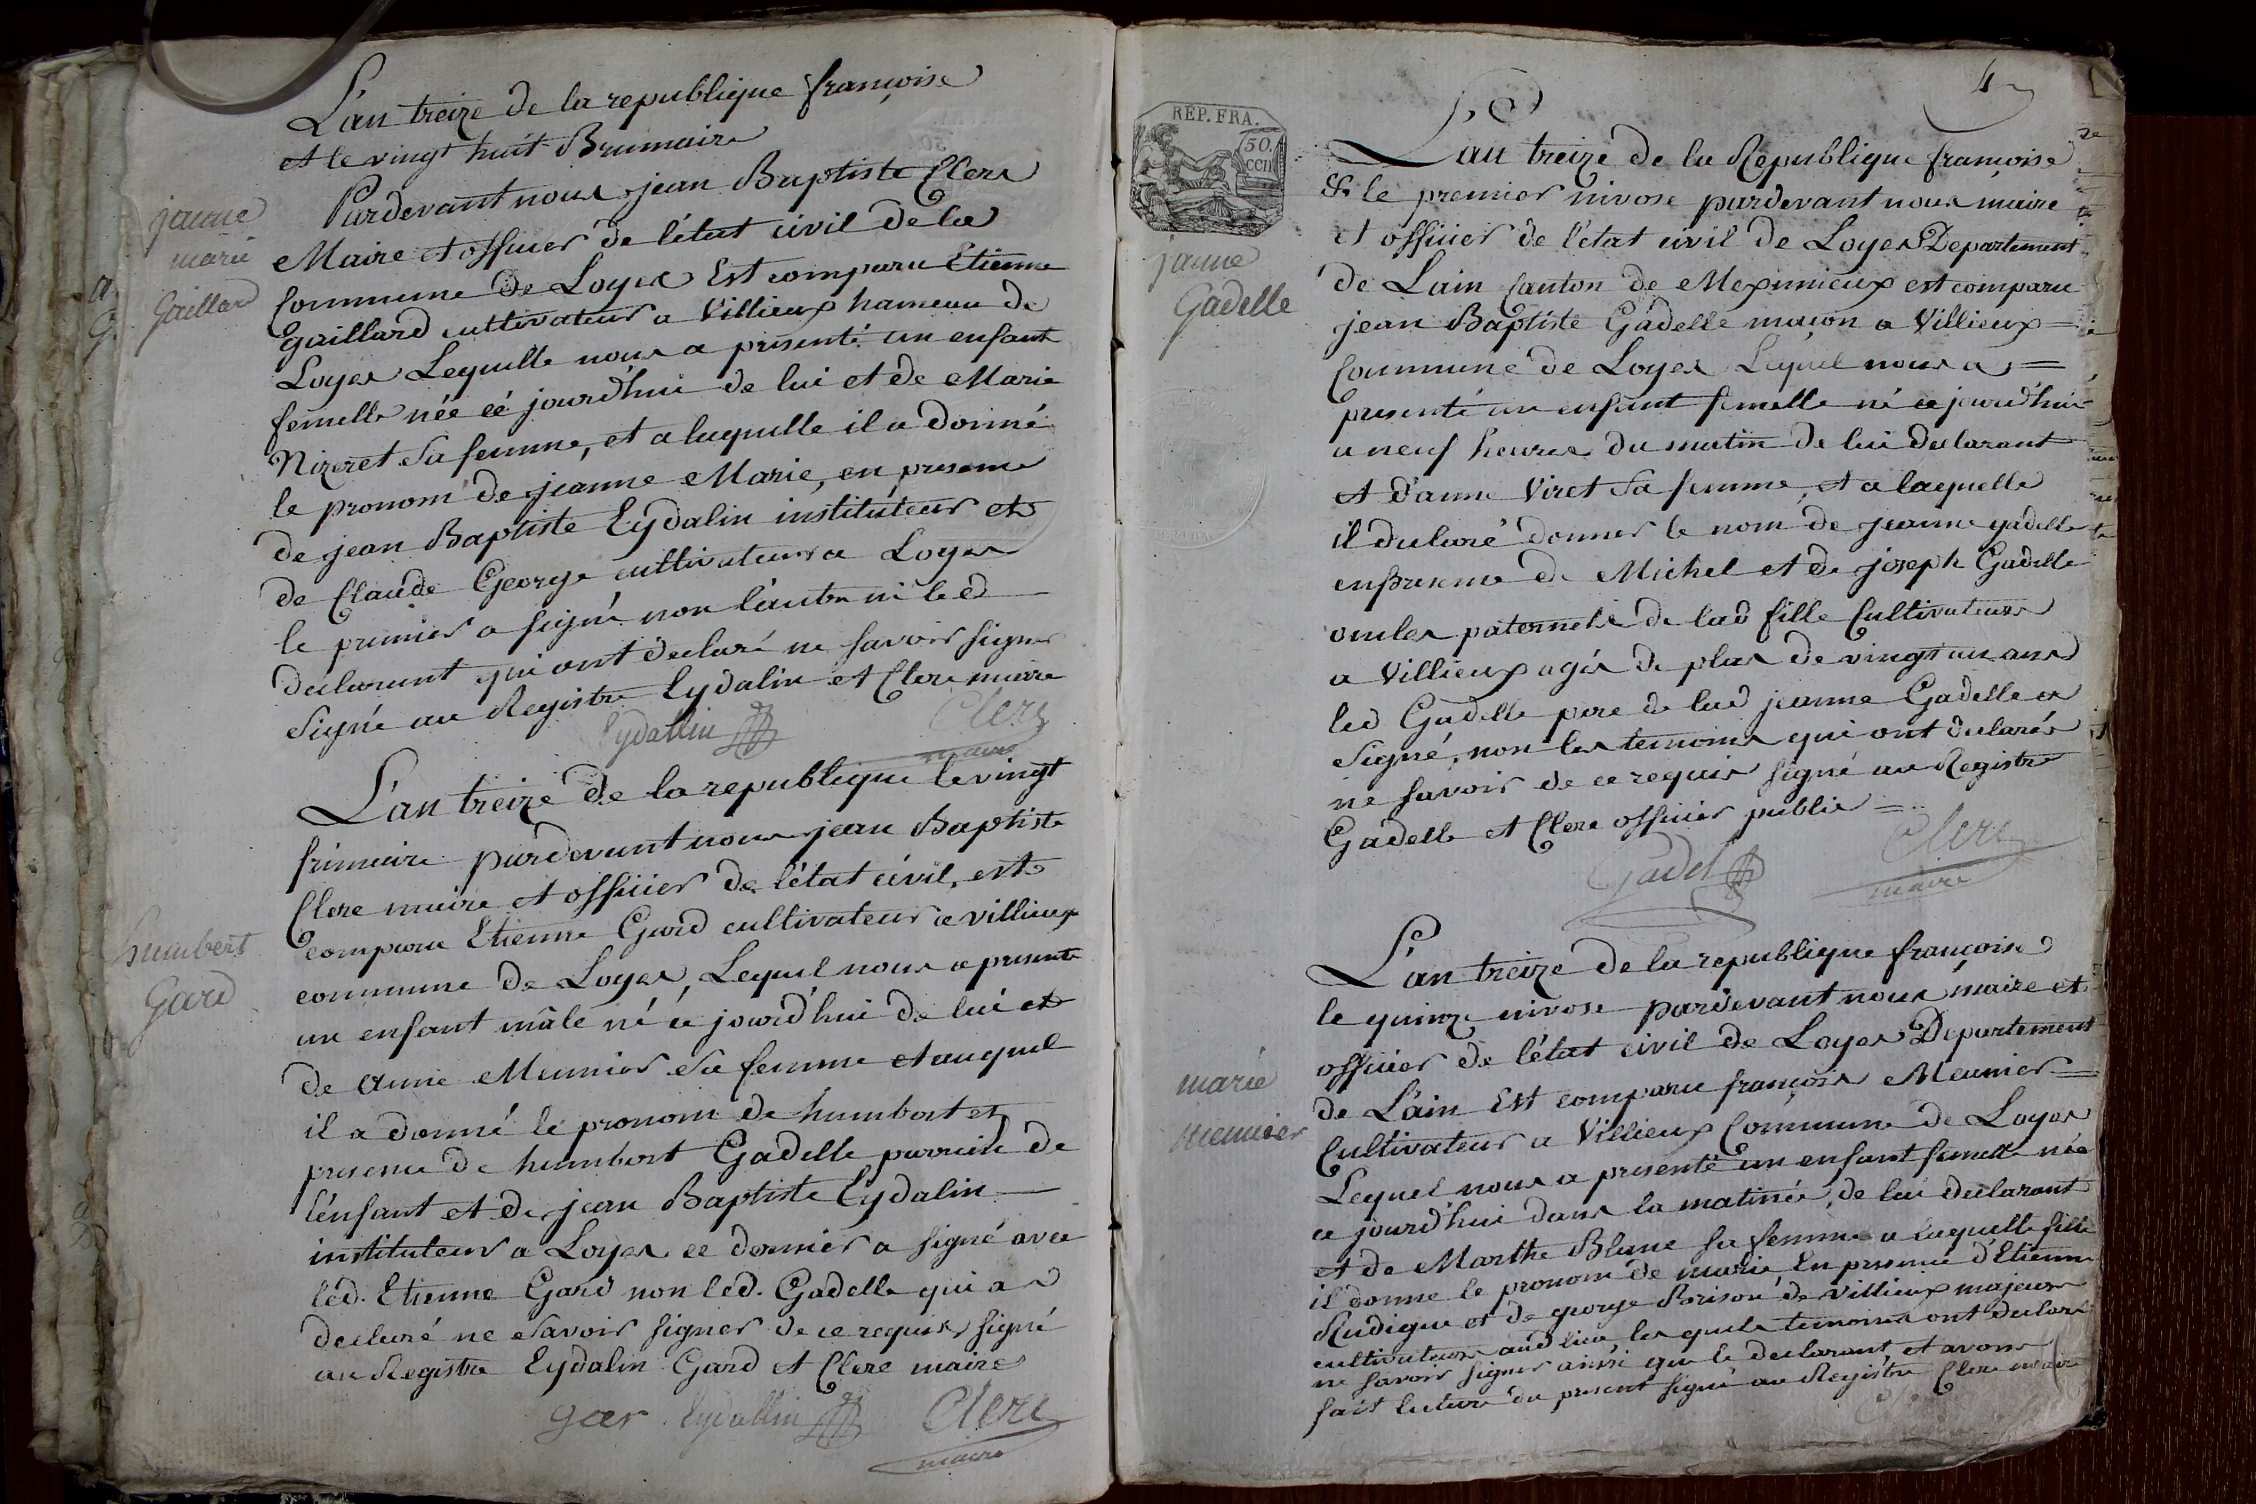 L'an treize de la republique françoise
et le vingt huit Brumaire
Pardevant nous jean Baptiste Clerc
Maire et officier de l'état civil de la
Commune de Loyes Est comparu Etienne
gaillard cultivateur a Villieux hameau de
Loyes Lequelle nous a présenté un enfant
femelle née cé jourd'hui de lui et de Marie
Nizeret sa femme, et a laquelle il a donné
le pronom de jeanne Marie, en presence
de jean Baptiste Eydalin instituteur et
de Claude George cultivateur a Loyes
le premier a signé non l'autre ni led
declarant qui ont declaré ne savoir signer
Signé au Registre Eydalin et Clerc maire
Eydallin Clerc
maire
jeanne
marie
gaillard
L'an treize de la republique le vingt
frimaire pardevant nous jean Baptiste
Clerc maire et officier de l'état civil, est
comparu Etienne Gard cultivateur a villieux
commune de Loyes, Lequel nous a presenté
un enfant mâle né ce jourd'hui de lui et
de anne Meunier sa femme et auquel
il a donné le pronom de humbert en
presence de humbert Gadelle parrain de
l'enfant et de jean Baptiste Eydalin
instituteur a Loyes ce dernier a signé avec
led. Etienne Gard non led. Gadelle qui a
declaré ne savoir signer de ce requis signé
au Registre Eydalin Gard et Clerc maire
gar Eydallin Clerc
maire
humbert
Gard
4
REP. FRA.
50.
cen
L'an treize de la Republique françoise
& le premier nivose pardevant nous maire
et officier de l'état civil de Loyes Departement
de Lain Canton de Meximieux est comparu
jean Baptiste Gadelle maçon a Villieux =
Commune de Loyes Lequel nous a =
presenté un enfant femelle né ce jourd'hui
a neuf heures du matin de lui declarant
et d'anne Viret sa femme, et a laquelle
il declaré donner le nom de jeanne gadelle
en presence de Michel et de joseph Gadelle
oncles paternels de lad fille Cultivateurs
a Villieux agés de plus de vingt un ans
led Gadelle pere de lad jeanne Gadelle a
signé, non les temoins qui ont declarés
ne savoir de ce requis signé au Registre
Gadelle et Clerc officier public =
Gadel Clerc
maire
jeanne
Gadelle
L'an treize de la republique françoise
le quinze nivose pardevant nous maire et
officier de l'état civil de Loyes Departement
de L'ain Est comparu françois Meunier =
Cultivateur a Villieux Commune de Loyes
Lequel nous a presenté un enfant femelle née
ce jourd'hui dans la matinée, de lui declarant
et de Marthe Blanc sa femme a laquelle fille
il donne le pronom de marie En presence d'Etienne
Rudigue et de george de Villieux majeurs
cultivateurs aud lieu les quels temoins ont declaré
ne savoir signer ainsi que le declarant et avons
fait lecture du present signé au Registre Clerc maire
marie
meunier